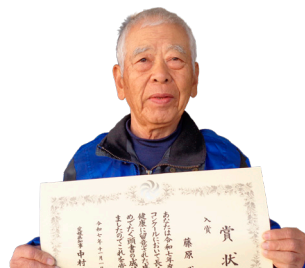 賞状
入賞
藤原
あなたは令和七年
コンクールにおいて
健康に留意された
めでたく頭書の成
ましたのでこれを
令和七年十一月
愛媛県知事 中村